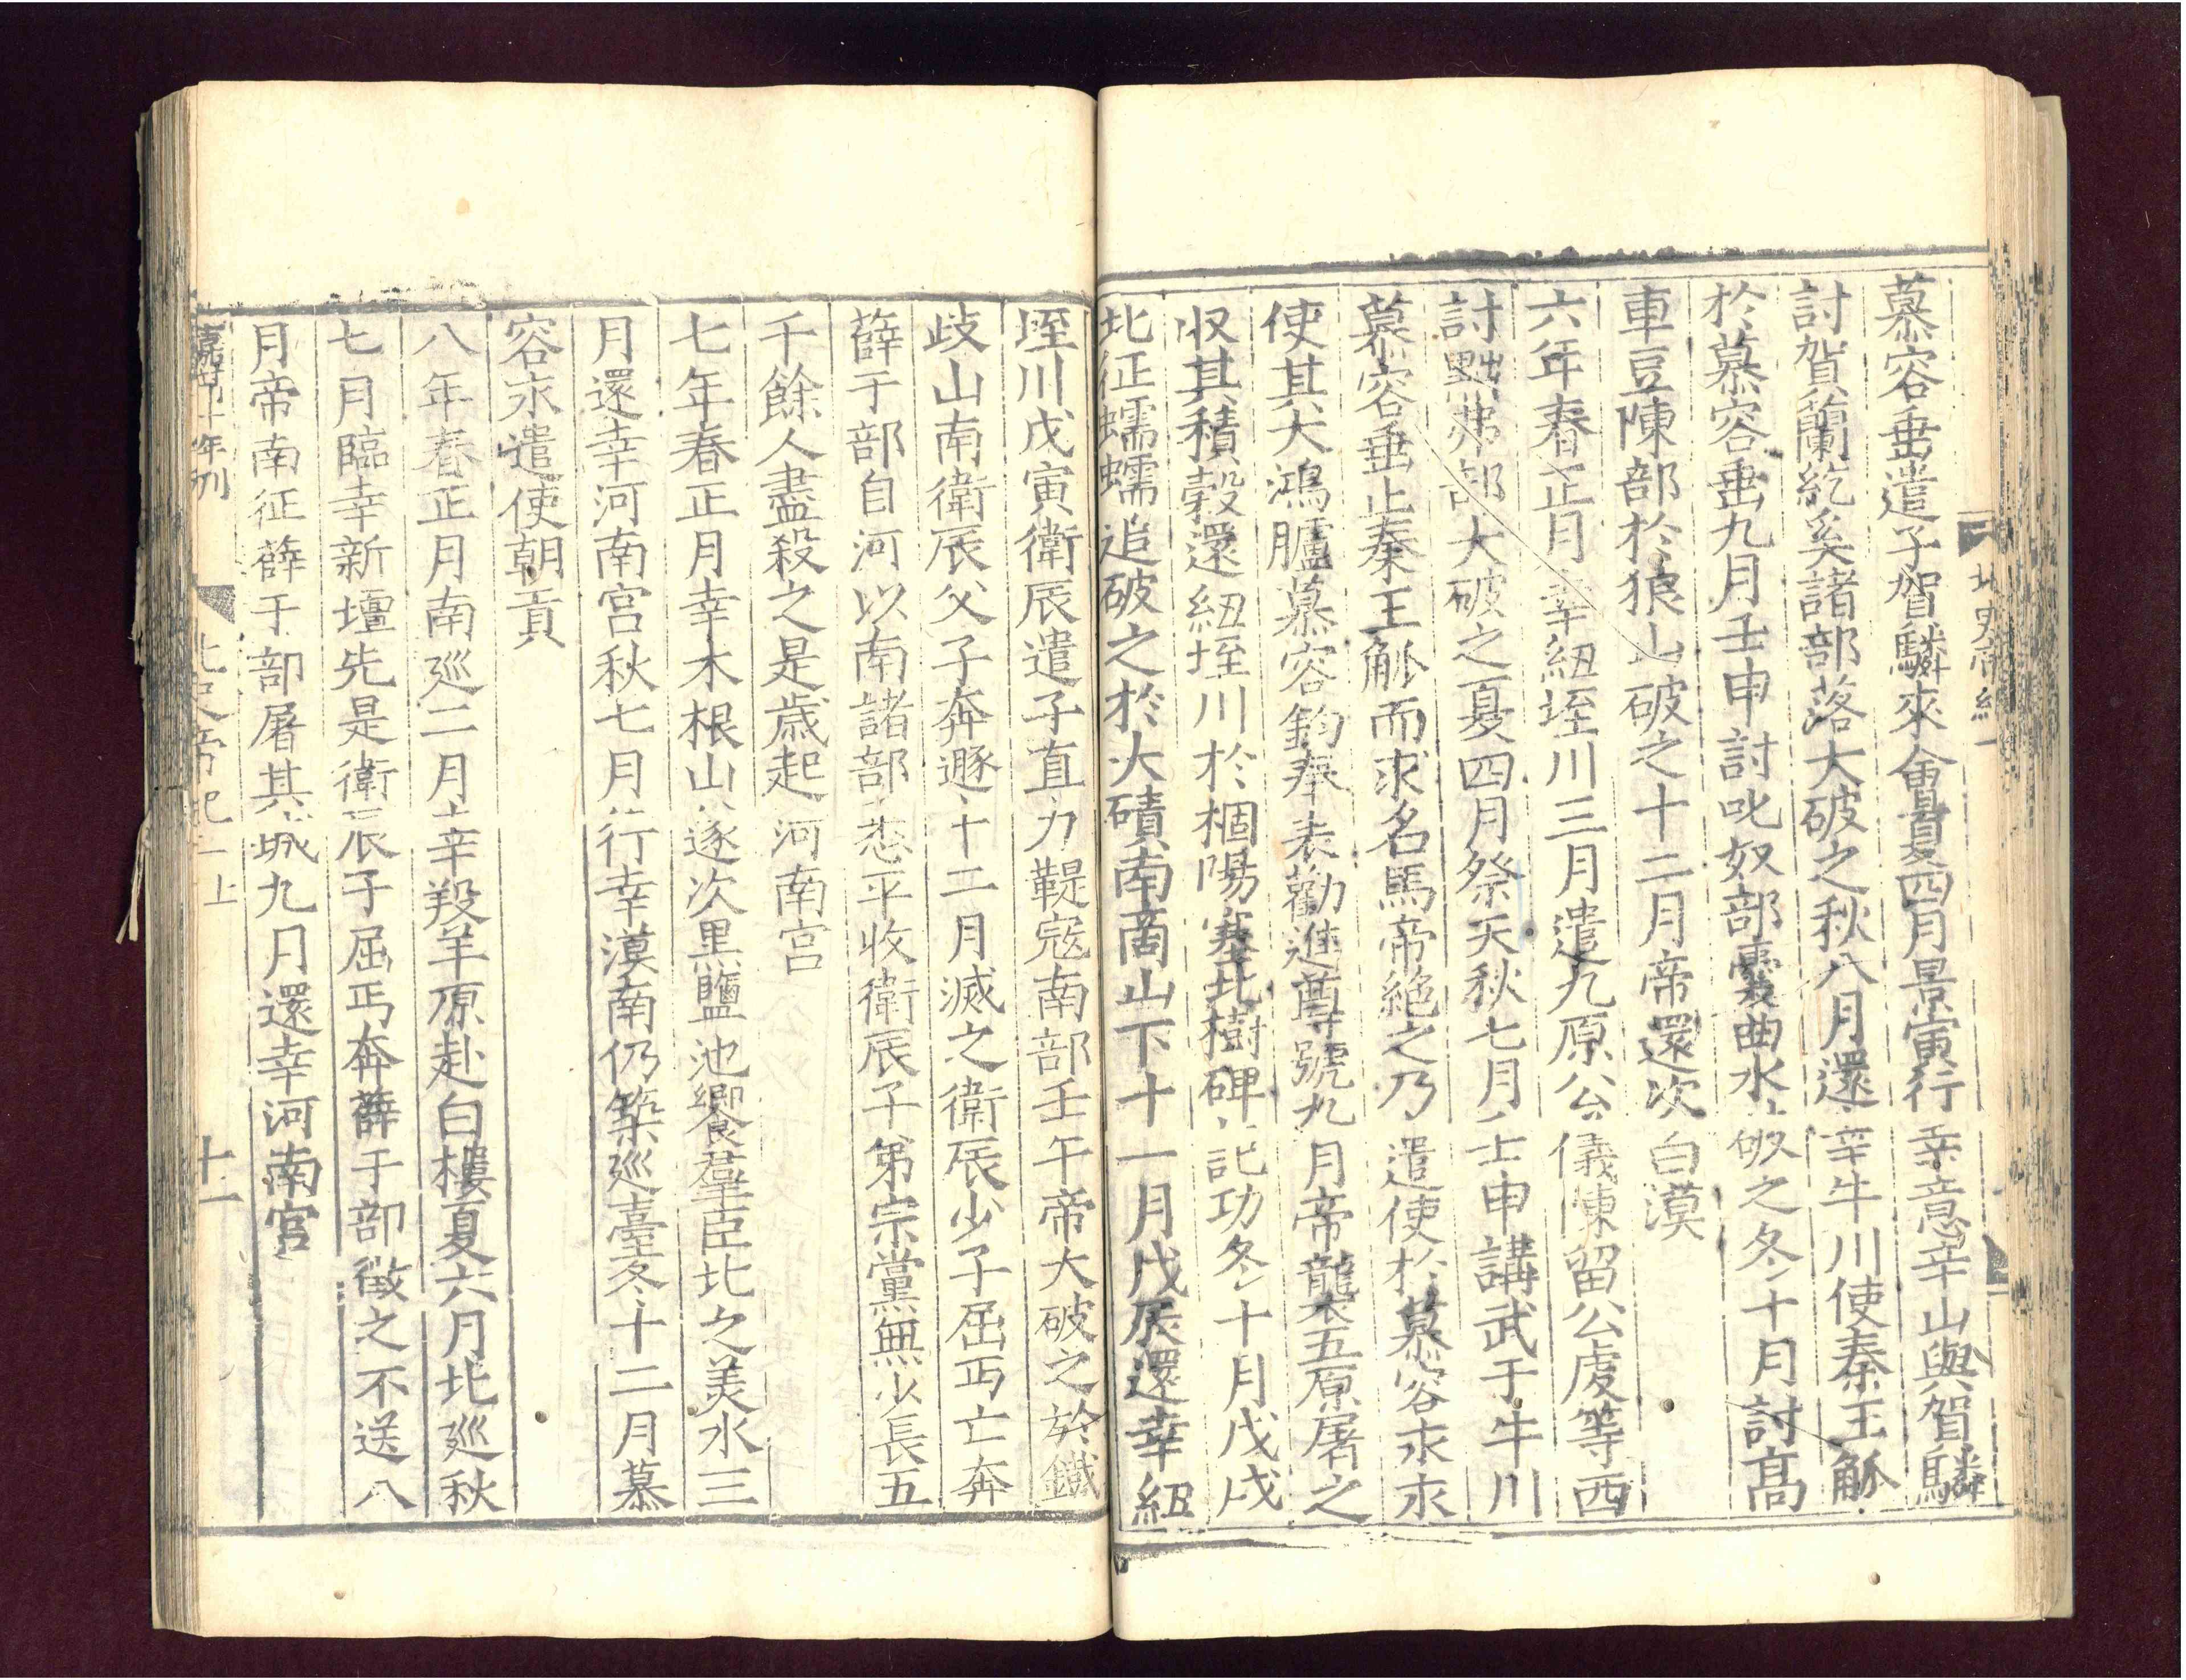 北史帝紀一
慕容垂遣子賀驎來會夏四月景寅行幸意辛山與賀驎
討賀蘭紇奚諸部落大破之秋八月還幸牛川使秦王觚
於慕容垂九月壬申討叱奴部於囊曲水破之冬十月討高
車豆陳部於狼山破之十二月帝還次白漠
六年春正月幸紐垤川三月遣九原公儀陳留公虔等西
討黜弗部大破之夏四月祭天秋七月壬申講武于牛川
慕容垂止秦王觚而求名馬帝絶之乃遣使於慕容永永
使其大鴻臚慕容鈞奉表勸進尊號九月帝襲五原屠之
収其積穀還紐垤川於棝陽塞北樹碑記功冬十月戊戌
北征蠕蠕追破之於大磧南商山下十一月戊辰還幸紐
垤川戊寅衛辰遣子直力鞮寇南部壬午帝大破之於鐵
歧山南衛辰父子奔遯十二月滅之衛辰少子屈丏亡奔
薛于部自河以南諸部悉平收衛辰子弟宗黨無少長五
千餘人盡殺之是歳起河南宮
七年春正月幸木根山遂次黑鹽池饗羣臣北之美水三
月還幸河南宮秋七月行幸漠南仍築巡臺冬十二月慕
容永遣使朝貢
八年春正月南巡二月幸羖羊原赴白樓夏六月北巡秋
七月臨幸新壇先是衛辰子屈丏奔薛于部徵之不送八
月帝南征薛于部屠其城九月還幸河南宮
嘉靖十年刊
北史帝紀一上
十一